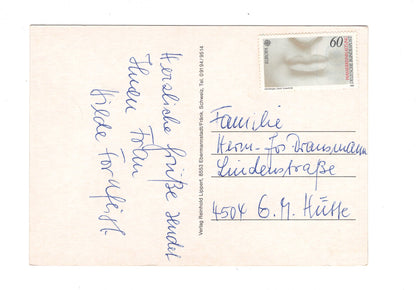 Herzliche Grüße sendet
Ihnen Frau
Hilde
Verlag Reinhold Lippert, 8553 Ebermannstadt/Fränk. Schweiz, Tel. 09194/9514
60
EUROPA
DEUTSCHE BUNDESPOST
Familie
Herm-Jos Dransmann
Lindenstraße
4504 G. M. Hütte